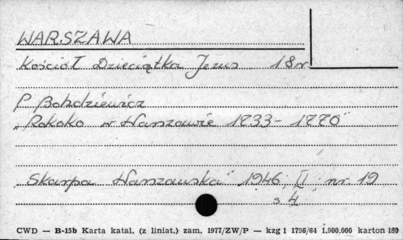 WARSZAWA
Kościoł Dzieciątka Jezus 18 w
P Bohdziewicz
„Rokoko w Warszawie 1733-1770"
„Skarpa Warszawska" 1946, II nr 19
s 4
CWD — B-15b Karta katal. (z liniat.) zam. 1977/ZW/P — kzg 1 1796/64 1.900.000 karton 180